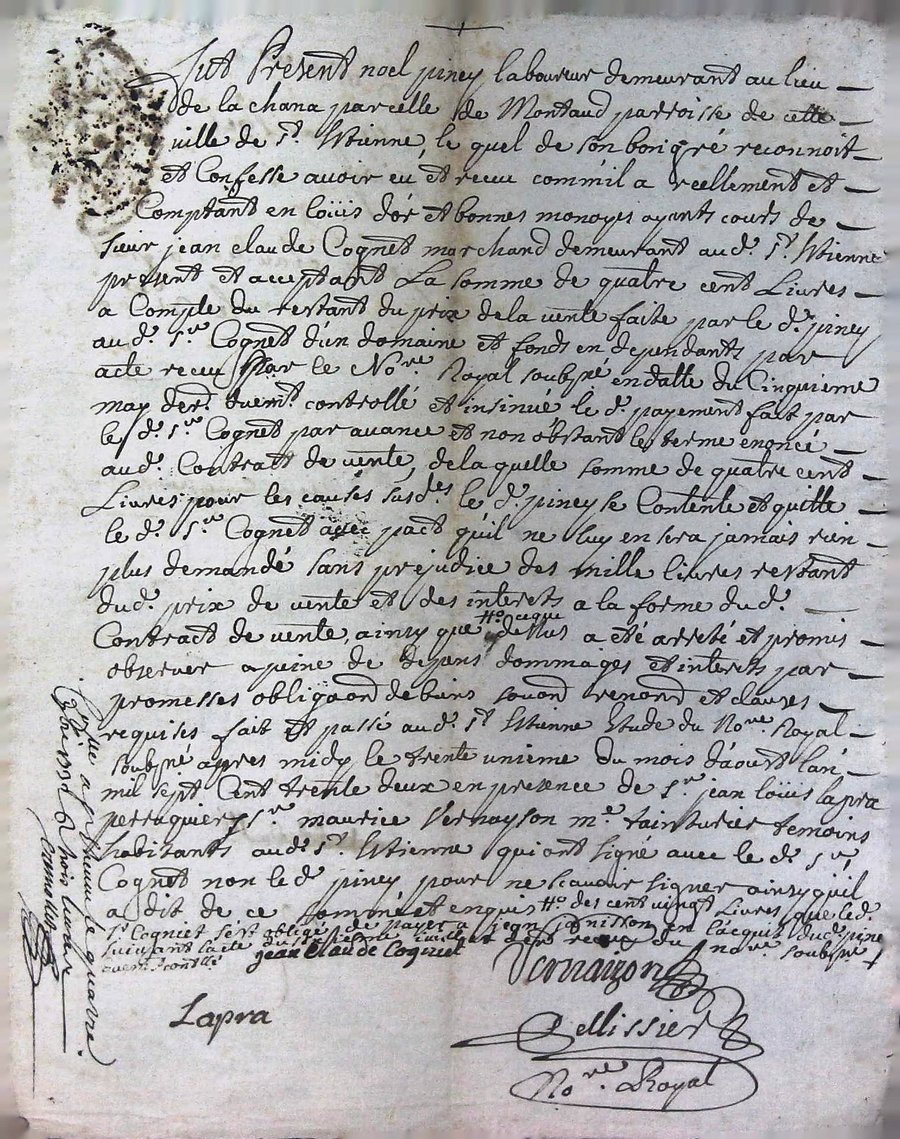 fut Present noel piney laboureur demeurant au lieu
de la chana parcelle de Montaud parroisse de cette
ville de St. Etienne, le quel de son bon gré reconnoit
et Confesse avoir eu et receu comm'il a reellement et
Comptant en loüis d'or et bonnes monoyes ayants cours de
sieur jean claude Cognet marchand demeurant aud. St. Etienne
present et acceptant La somme de quatre cent Livres
a Compte du restant du prix de la vente faite par le d. piney
au d. sr. Cognet d'un domaine et fonds en dependants par
acte receu par le Nore Royal soubsné en datte du Cinquieme
may der. duemt. controllé et insinué le d. payement fait par
le d. sr. Cognet par avance et non obstant le terme enoncé
aud. Contract de vente, de la quelle somme de quatre cent
Livres pour les causes susdes le d. piney se Contente et quitte
le d. sr. Cognet avec pact qu'il ne luy en sera jamais rien
plus demandé sans prejudice des mille livres restant
dud. prix de vente et des interets a la forme du d.
Contract de vente, ainsy que dessus a été arreté et promis
observer a peine de depens dommages et interets par
promesses obligaond de biens soubmond renond et clauses
requises fait et passé aud. St. Etienne Etude du Nore. Royal
soubsné apres midy le trente unieme du mois d'aoust l'an
mil sept Cent trente deux en presence de sr. jean loüis lapra
perruquier sr. maurice Vernayson me. tainturier temoins
habitants aud. St. Etienne qui ont signé avec le d. sr.
Cognet non le d. piney pour ne scavoir signer ainsy qu'il
a dit de ce sommé et enquis des cent vingt Livres que led.
sr. Cogniet s'est obligé de payer a jean janisson en l'acquit dud. piney
suivant l'acte receu du nore. soubsné
duemt controllé
jean Claude Cogniet
Vernaizon
Lapra
Pellissier
Nore. Royal